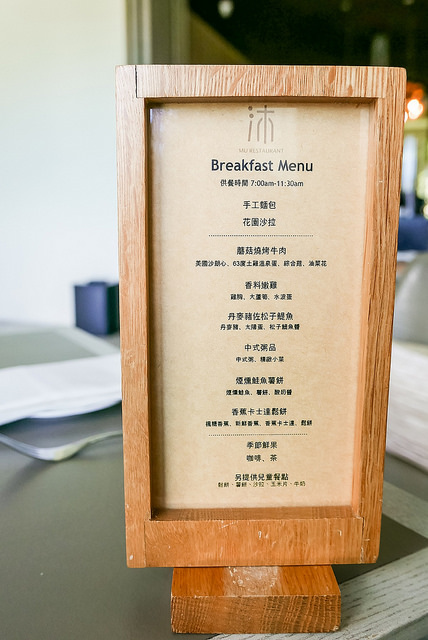 沐
MU RESTAURANT
Breakfast Menu
供餐時間 7:00am-11:30am
手工麵包
花園沙拉
蘑菇燒烤牛肉
美國沙朗心、63度土雞溫泉蛋、綜合菇、油菜花
香料嫩雞
雞胸、大蘆筍、水波蛋
丹麥豬佐松子鯷魚
丹麥豬、太陽蛋、松子鯷魚醬
中式粥品
中式粥、精緻小菜
煙燻鮭魚薯餅
煙燻鮭魚、薯餅、酸奶醬
香蕉卡士達鬆餅
楓糖香蕉、新鮮香蕉、香蕉卡士達、鬆餅
季節鮮果
咖啡、茶
另提供兒童餐點
鬆餅、薯餅、沙拉、玉米片、牛奶